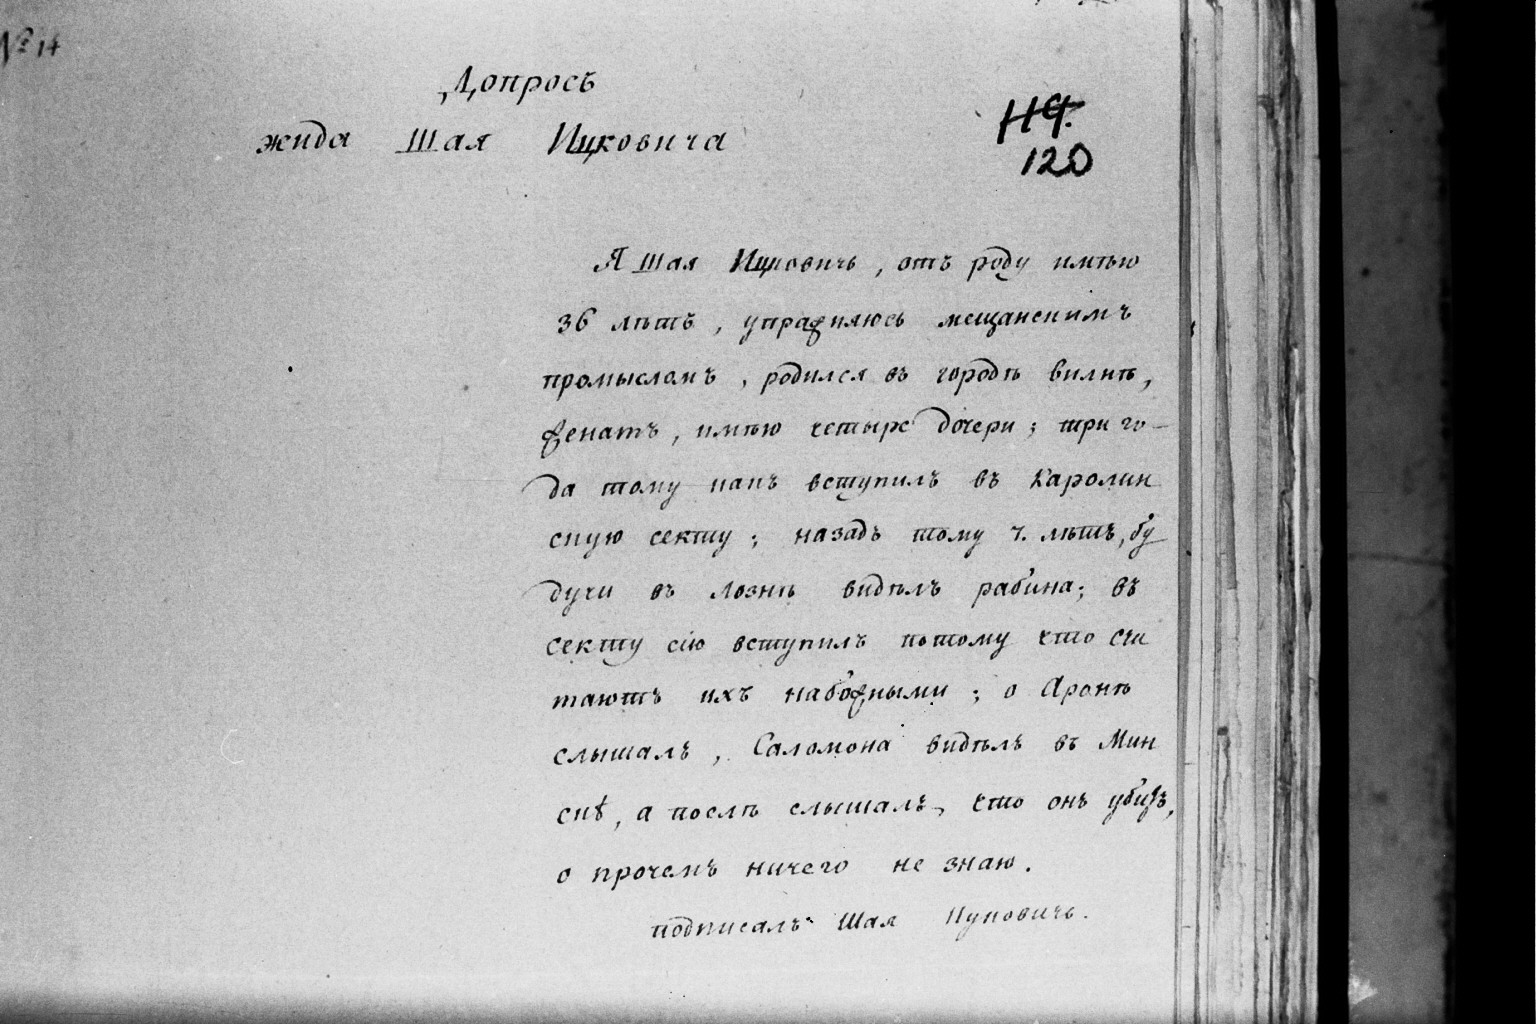 № 14
Допросъ
жида Шая Ицковича
119.
120
Я Шая Ицковичь, отъ роду имѣю
36 лѣтъ, упражняюсь мещанскимъ
промысломъ, родился въ городѣ вилнѣ,
женатъ, имѣю четыре дочери; три го-
да тому какъ вступилъ въ Каролин
скую секту; назадъ тому 7. лѣтъ, бу
дучи въ лознѣ видѣлъ рабина; въ
секту сію вступилъ потому что счи
таютъ ихъ набожными; о Аронѣ
слышалъ, Саломона видѣлъ въ Мин
скѣ, а послѣ слышалъ, что онъ убитъ,
о прочемъ ничего не знаю.
подписалъ Шая